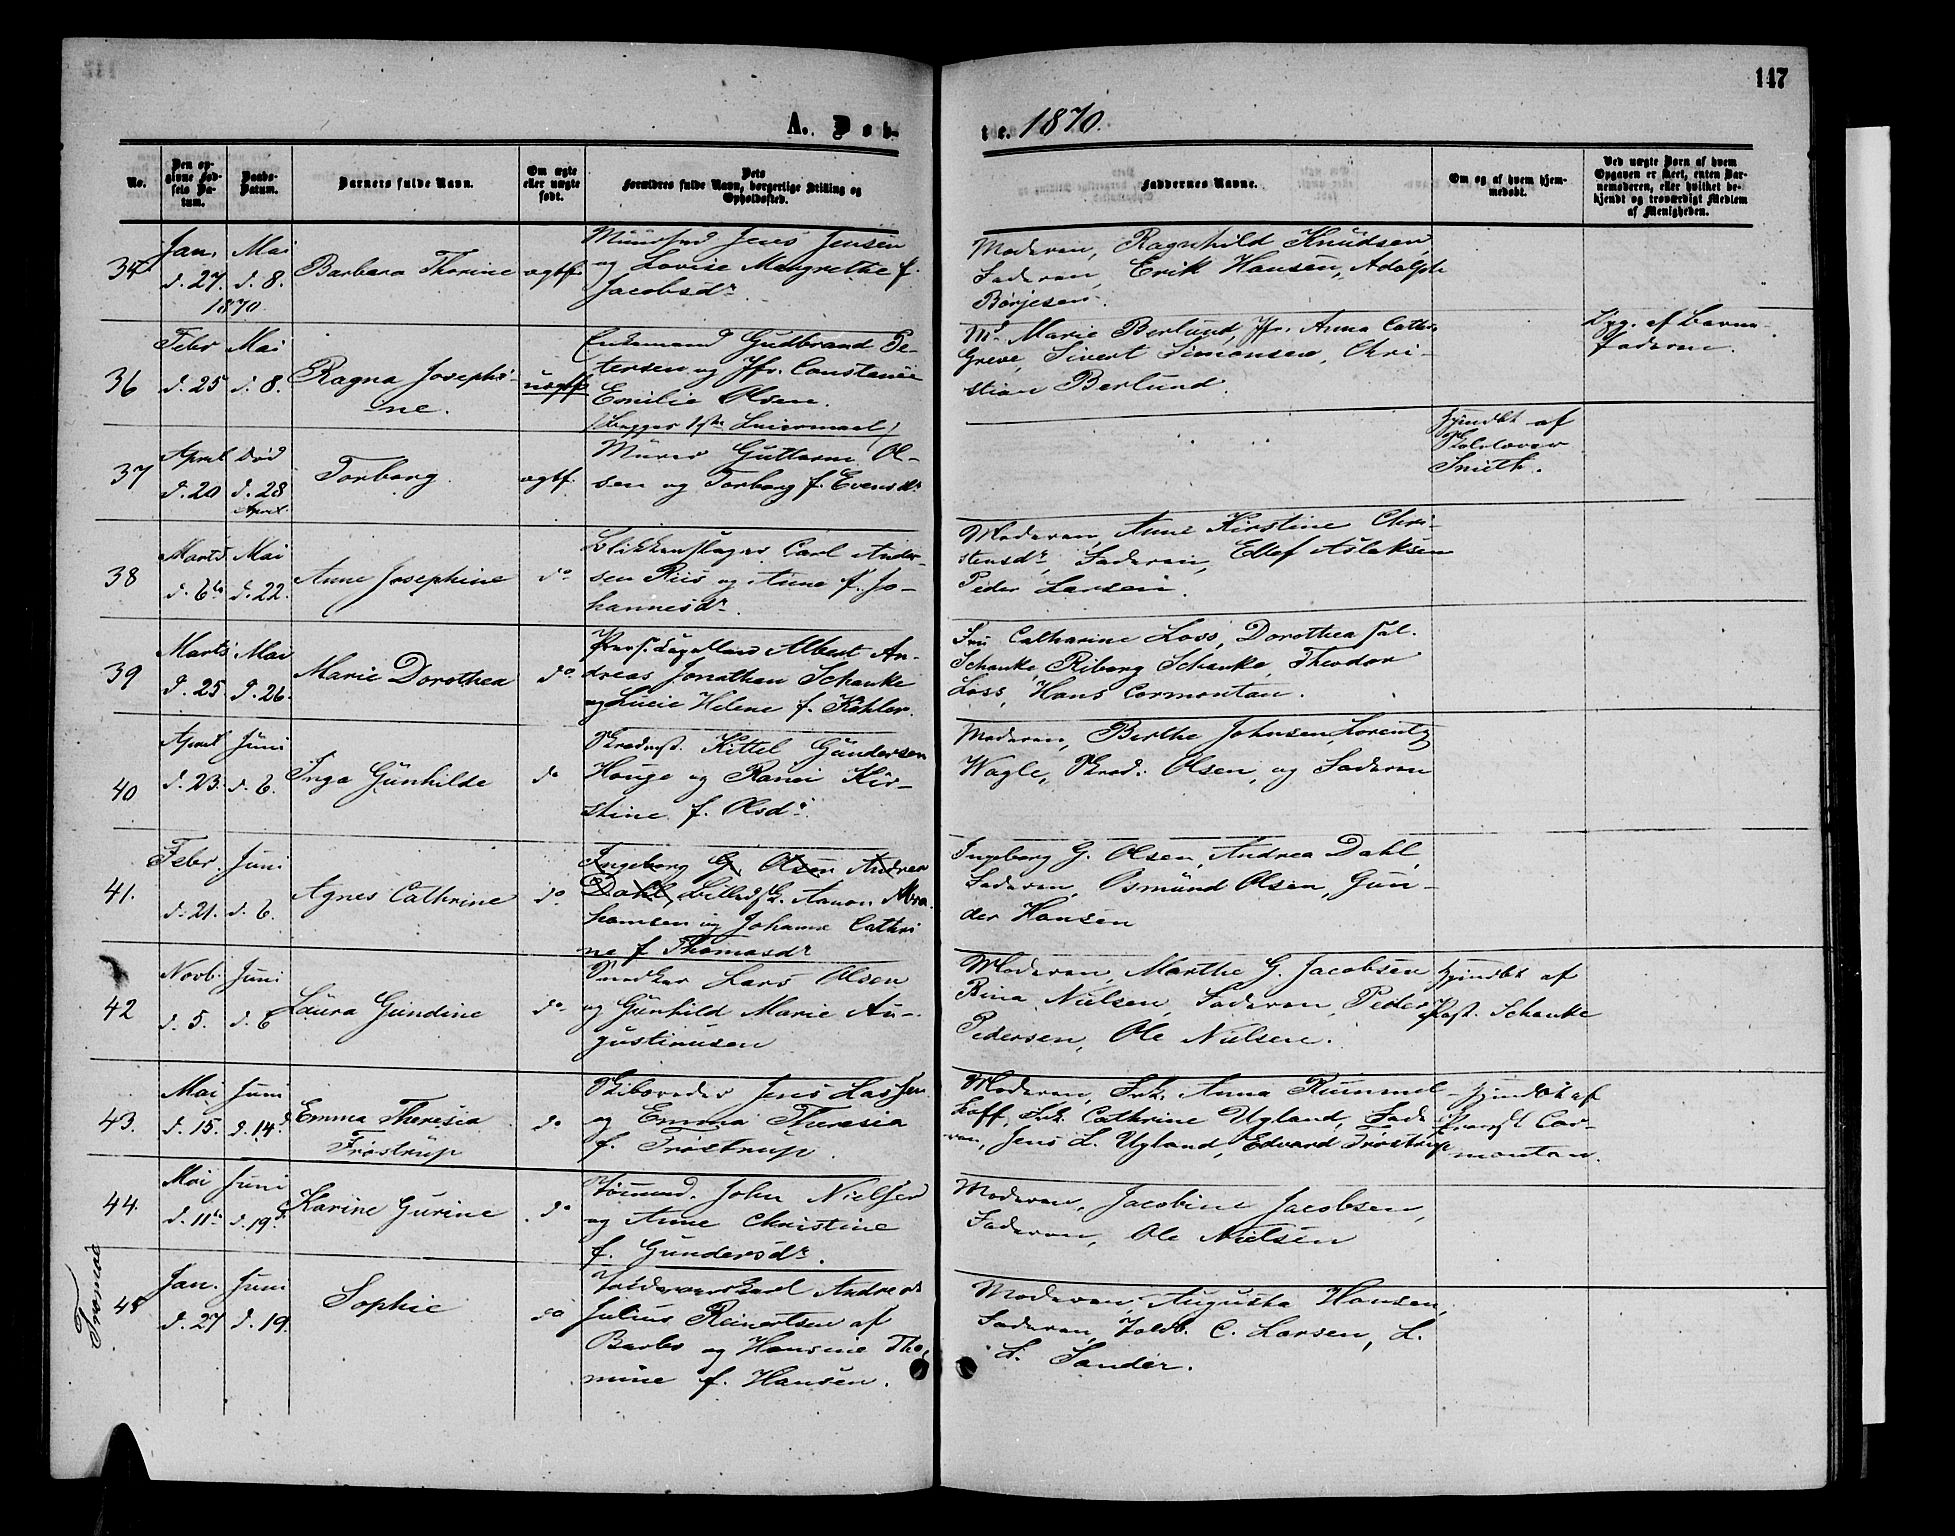 147
A. Døb-
te. 1870.
No.
Den op-
givne Fød-
sels Da-
tum.
Daabs-
Datum.
Barnets fulde Navn.
Om ægte
eller uægte
født.
Dets
Forældres fulde Navn, borgerlige Stilling og
Opholdssted.
Faddernes Navne.
Om og af hvem hjem-
medøbt.
Ved uægte Børn af hvem
Opgaven er skeet, enten Bar-
nemoderen, eller hvilket be-
kjendt og troværdigt Medlem
af Menigheden.
Jan. Mai
d. 27. d. 8.
1870
Barbara Thorine
ægtf.
Jens Jensen
og Lovise Margrethe f.
Jacobsdr.
Moderen, Ragnhild Knudsen,
Faderen, Erik Hansen, Adolph
Børjesen.
36
Febr Mai
d. 25 d. 8.
Ragna Josephi-
ne.
uægtf
Gudbrand Pe-
tersen og Jfr. Constance
Emilie Olsen.
(begges 1ste Leiermaal)
Md Marie Berlund, Jfr. Anna Cathr.
Greve, Sivert Simonsen, Chri-
stian Berlund.
Opg. af Barne-
faderen.
37
April død
d. 20 d. 28
April
Torborg.
ægtf.
Murer Guttorm Ol-
sen og Torborg f. Evensdr
Hjemdøbt af
Smith.
38
Marts Mai
d. 6te d. 22.
Anne Josephine
do
Blikkenslager Carl Ander-
sen Riis og Anne f. Jo-
hannesdr.
Moderen, Anne Kirstine Chri-
stensdr, Faderen, Ellef Aslaksen
Peder Larsen.
39
Marts Mai
d. 25 d. 26.
Marie Dorothea
do
Pers. Capellan Albert An-
dreas Jonathan Schanke
og Lucie Helene f. Kähler.
Fru Catharine Loss, Dorothea Sal.
Schanke, Riborg Schanke, Theodor
Loss, Hans Cormontan.
40
April Juni
d. 23. d. 6.
Inga Gunhilde
do
Skredrst. Kittel Gundersen
Houge og Ranei Kir-
stine f. Olsdr.
Moderen, Berthe Johnsen, Lorentz
Wagle, Skred. Olsen, og Faderen
41.
Febr. Juni
d. 21. d. 6.
Agnes Cathrine
do.
Ingeborg G. Olsen Andrea
Dahl, Aanon Abra-
hamsen og Johanne Cathri
ne f. Thomasdr
Ingeborg G. Olsen, Andrea Dahl,
Faderen, Osmund Olsen, Gun-
der Hansen
42
Novb. Juni
d. 5. d. 6
Laura Gundine
do.
Snedker Lars Olsen
og Gunhild Marie Au-
gustinusen
Moderen, Marthe G. Jacobsen
Rina Nielsen, Faderen, Peder
Pedersen, Ole Nielsen.
Hjemdøbt af
Past. Schanke
43.
Mai Juni
d. 15. d. 14d
Emma Theresia
Frøstrup
do
Skibsreder Jens Lassen
og Emma Theresia
f. Frøstrup.
Moderen, Frk. Anna Rummel-
hoff, Frk. Cathrine Ugland, Fade
ren, Jens L. Ugland, Edvard Frøstrup
Hjemdøbt af
Provst Cor-
montan.
44.
Mai Juni
d. 11te d. 19d.
Karine Gurine
do
Tømmermd. John Nielsen
og Anne Christine
f. Gundersdr.
Moderen, Jacobine Jacobsen,
Faderen, Ole Nielsen
Tromøe
45
Jan. Juni
d. 27 d. 19.
Sophie
do
Toldroerskarl Andreas
Julius Reinertsen af
Barbo og Hansine Tho-
mine f. Hansen.
Moderen, Augusta Hansen,
Faderen, Toldb. C. Larsen, L.
L. Sander.